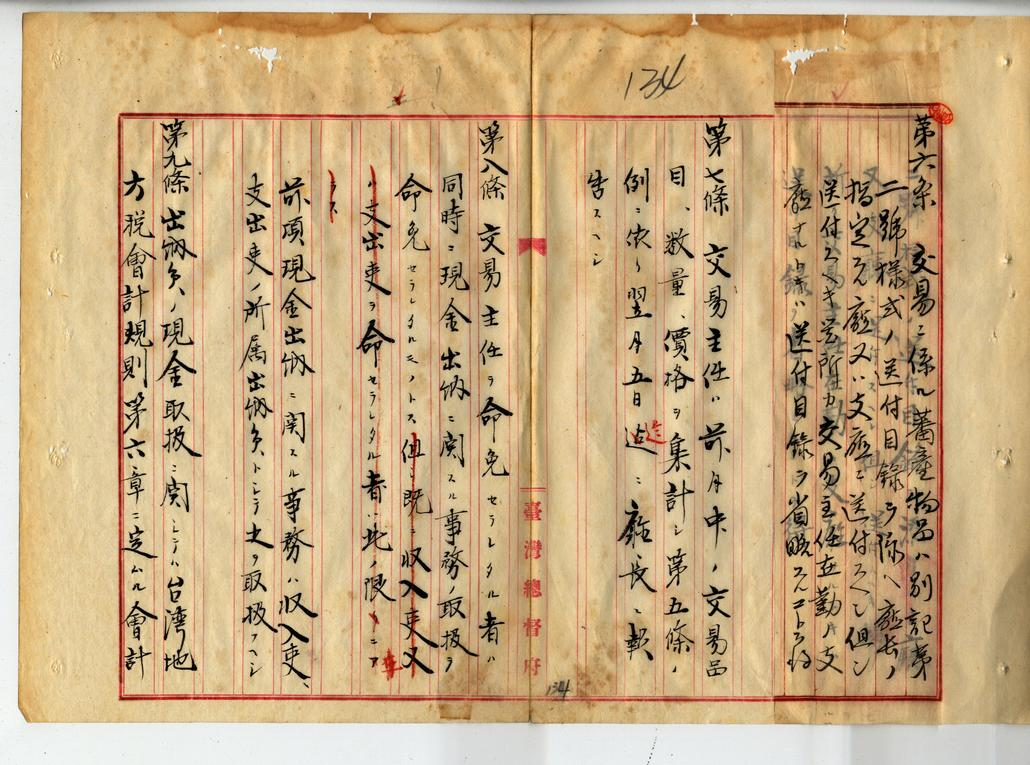 134
第六条 交易ニ係ル蕃産物品ハ別記第
二號様式ノ送付目録ヲ添ヘ廳長ノ
指定スル廳又ハ支廳ニ送付スヘシ但シ
送付スヘキ箇所カ交易主任在勤ノ支
廳ナルトキハ送付目録ヲ省略スルコトヲ得
第七條 交易主任ハ前月中ノ交易品
目、数量、價格ヲ集計シ第五條ノ
例ニ依リ翌月五日迄ニ廳長ニ報
告スヘシ
第八條 交易主任ヲ命免セラレタル者ハ
同時ニ現金出納ニ関スル事務ノ取扱ヲ
命免セラレタルモノトス但シ既ニ収入吏又
ハ支出吏ヲ命セラレタル者ハ此ノ限ニア
ラス
前項現金出納ニ関スル事務ハ収入吏、
支出吏ノ所属出納員トシテ之ヲ取扱フヘシ
第九條 出納員ノ現金取扱ニ関シテハ台湾地
方税會計規則第六章ニ定ムル會計
臺灣總督府
134